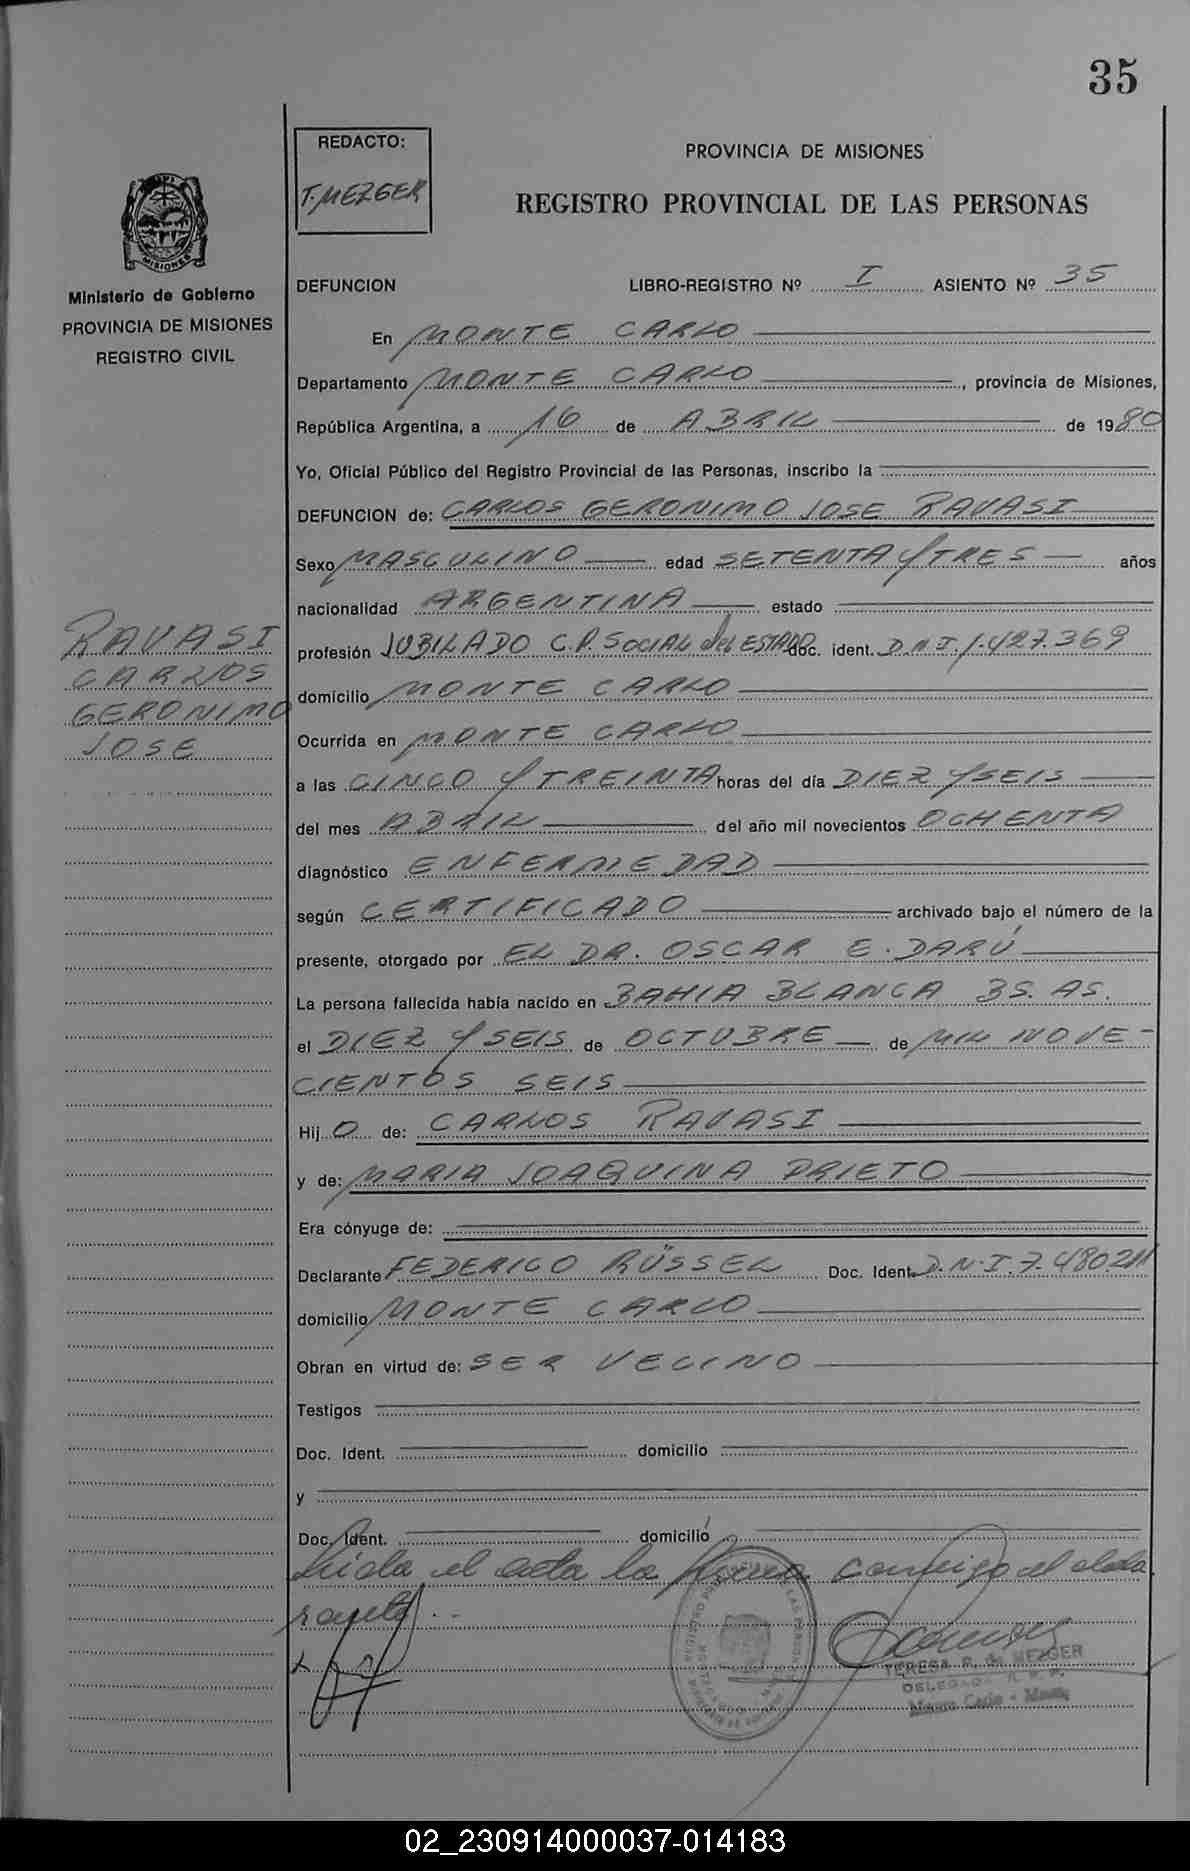 35
REDACTO:
T. MEZGER
PROVINCIA DE MISIONES
REGISTRO PROVINCIAL DE LAS PERSONAS
MISIONES
Ministerio de Gobierno
PROVINCIA DE MISIONES
REGISTRO CIVIL
DEFUNCION LIBRO-REGISTRO Nº I ASIENTO Nº 35
En MONTE CARLO
Departamento MONTE CARLO, provincia de Misiones,
República Argentina, a 16 de ABRIL de 1980
Yo, Oficial Público del Registro Provincial de las Personas, inscribo la
DEFUNCION de: CARLOS GERONIMO JOSE RAVASI
Sexo MASCULINO edad SETENTA Y TRES años
nacionalidad ARGENTINA estado
RAVASI
CARLOS
GERONIMO
JOSE
profesión JUBILADO C.P. SOCIAL del ESTADO doc. ident. D.N.I. 1.427.369
domicilio MONTE CARLO
Ocurrida en MONTE CARLO
a las CINCO Y TREINTA horas del día DIEZ Y SEIS
del mes ABRIL del año mil novecientos OCHENTA
diagnóstico ENFERMEDAD
según CERTIFICADO archivado bajo el número de la
presente, otorgado por EL DR. OSCAR E. DARÚ
La persona fallecida había nacido en BAHIA BLANCA BS. AS.
el DIEZ Y SEIS de OCTUBRE de MIL NOVE-
CIENTOS SEIS
Hij O de: CARLOS RAVASI
y de: MARIA JOAQUINA PRIETO
Era cónyuge de:
Declarante FEDERICO RÜSSEL Doc. Ident. D.N.I. 7.480211
domicilio MONTE CARLO
Obran en virtud de: SER VECINO
Testigos
Doc. Ident. domicilio
y
Doc. Ident. domicilio
Leida el acta la firma conmigo el decla
rante.
TERESA R. de MEZGER
DELEGADA R. P. P.
Monte Carlo - Mnes.
02_230914000037-014183